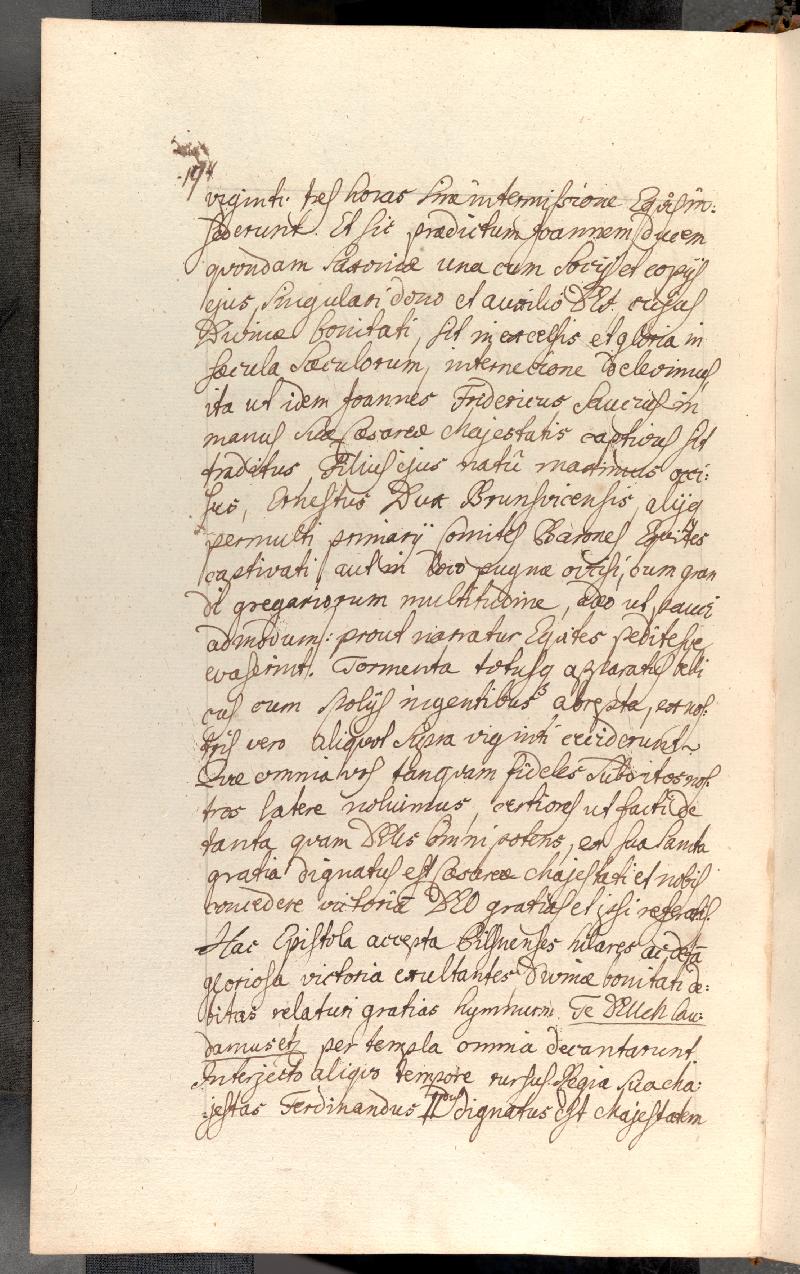 194
viginti tres horas sine intermissione Equis in:
sederunt. Et sic prædictum Joannem Ducem
quondam Saxoniæ una cum Socijs et copijs
ejus, singulari dono et auxilio DEI. cujus
Divinæ bonitati, sit in excelsis et gloria in
sæcula sæculorum, internecione delevimus,
ita ut idem Joannes Fridericus saucius in
manus suæ Cæsareæ Majestatis captivus sit
traditus, Filius ejus natu maximus occi:
sus, Ernestus Dux Brunsvicensis, alijq
permulti primarij Comites Barones Equites
captivati aut in loco pugnæ occisi, cum gran
di gregariorum multitudine, adeo ut pauci
admodum: prout narratur Equites peditesqe
evaserint. Tormenta totusq apparatus belli
cus cum spolijs ingentibus abrepta, ex nos:
tris vero aliquot supra viginti ceciderunt
Quæ omnia vos tanquam fideles Subditos nos:
tros latere noluimus, certiores ut facti de
tanta quam DEus Omnipotens, ex sua sancta
gratia dignatus est Cæsareæ Majestati et nobis
concedere victoria DEO gratias et ipsi referatis.
Hac Epistola accepta Pilsnenses hilares ac de tã
gloriosa victoria exultantes Divinæ bonitati de:
bitas relaturi gratias hymnum Te DEUM lau:
damus etz per templa omnia decantarunt
Interjecto aliquo tempore rursus Regia sua Ma:
jestas Ferdinandus Idus dignatus est Majestatem